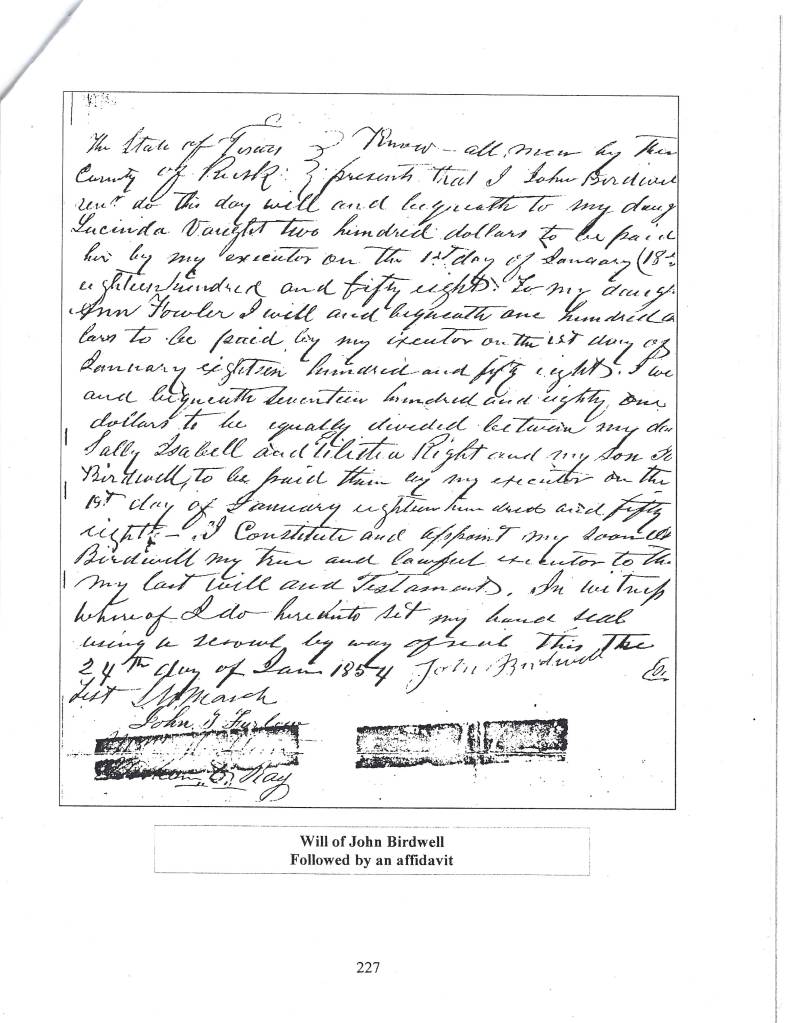 The State of Texas } Know - all men by these
County of Rusk } presents that I John Birdwell
senr do this day will and bequeath to my daug
Lucinda Vaught two hundred dollars to be paid
her by my executor on the 1st day of January (18
eighteen hundred and fifty eight). To my daug
Ann Fowler I will and bequeath one hundred
lars to be paid by my executor on the 1st day of
January eighteen hundred and fifty eight. I
and bequeath seventeen hundred and eighty one
dollars to be equally divided between my
Sally Isabell and Right and my son
Birdwell, to be paid them by my executor on the
1st day of January eighteen hundred and fifty
eight - I Constitute and appoint my son
Birdwell my true and lawful executor to the
my last will and Testament. In witness
whereof I do hereunto set my hand seal
using a scrowl by way of seal this the
24th day of Jan 1854 John Birdwell
Test March
John T Furlow
Ray
Will of John Birdwell
Followed by an affidavit
227